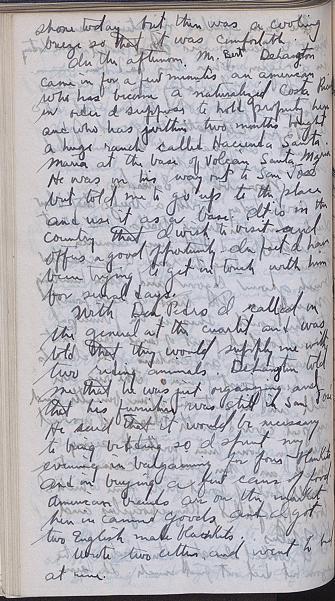 shone today but there was a cooling
breeze so that it was comfortable.
In the afternoon, Mr. Bert Dehington
came in for a few minutes, an american
who has become a naturalized Costa Rican
in order I suppose to hold property here
and who has within two months bought
a huge ranch called Hacienda Santa
Maria at the base of Volcan Santa Maria
He was on his way out to San Jose
but told me to go up to the place
and use it as a base. It is in the
country that I wish to visit and
offers a good opportunity. In fact I had
been trying to get in touch with him
for several days.
With Don Pedro I called on
the general at the cuartel and was
told that they would supply me with
two riding animals. Dehington told
me that he was just organizing and
that his furniture was still in San Jose
He said that it would be necessary
to bring bedding so I spent my
evening in bargaining for four blankets
and in buying a few cans of food
American brands are on the market
here in canned goods, and I got
two English made blankets.
Wrote two letters and went to bed
at nine.